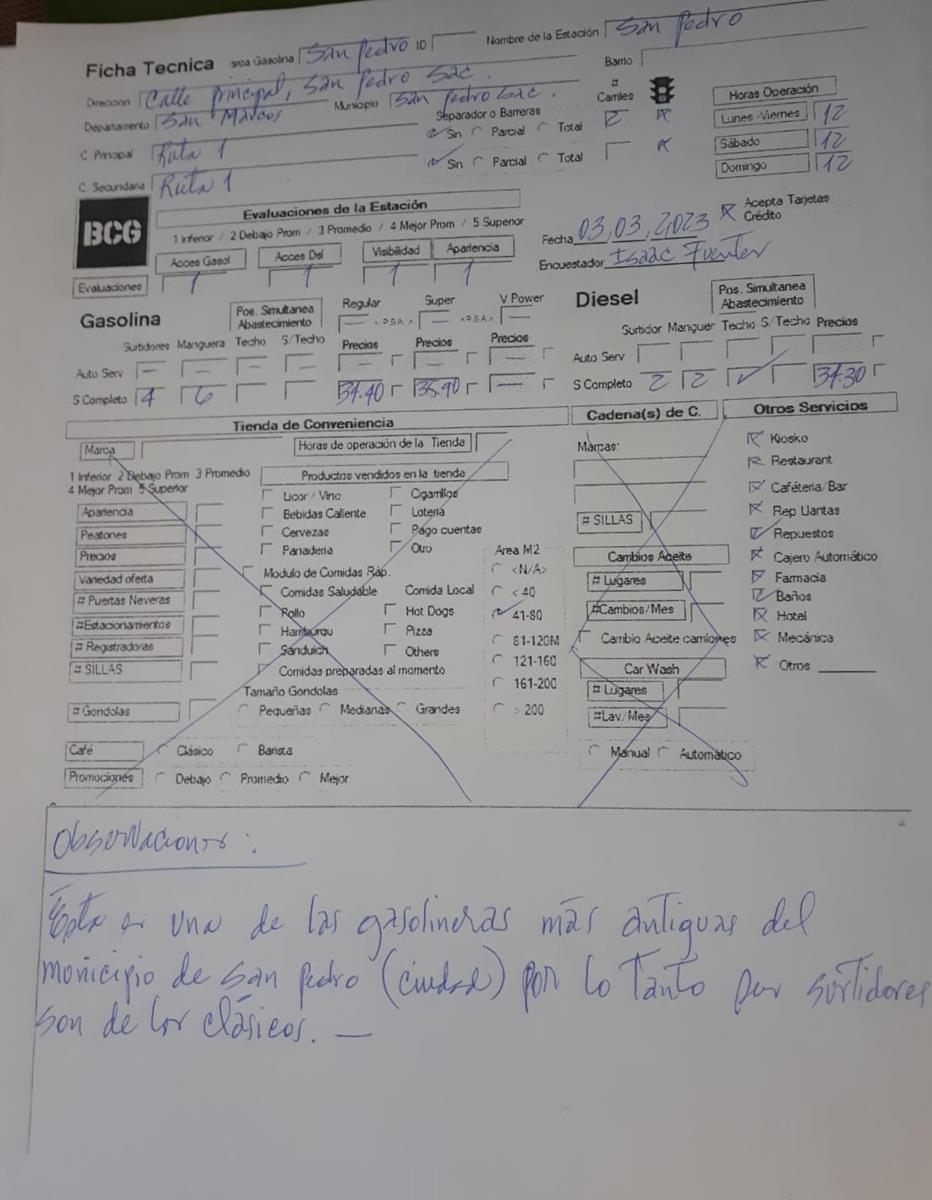 Ficha Tecnica arca Gasolina San Pedro ID Nombre de la Estación San Pedro
Direccion Calle Principal, San Pedro Sac. Barrio
Departamento San Marcos Municipio San Pedro Sac. Separador o Barreras # Carriles Horas Operación
C Principal Ruta 1 Sin Parcial Total 2 Lunes -Viernes 12
C. Secundaria Ruta 1 Sin Parcial Total Sábado 12
Domingo 12
BCG Evaluaciones de la Estación
1 Inferior / 2 Debajo Prom / 3 Promedio / 4 Mejor Prom / 5 Superior
Fecha 03,03,2023 Acepta Tarjetas Crédito
Acces Gasol Acces Dsl Visibilidad Apariencia Encuestador Isaac Fuentes
Evaluaciones 1 1 1 1
Gasolina Pos. Simultanea Abastecimiento Regular Super V Power Diesel Pos. Simultanea Abastecimiento
— <DSA> — <DSA> —
Surtidores Manguera Techo S/Techo Precios Precios Precios Surtidor Manguer Techo S/Techo Precios
Auto Serv — — — — — — — Auto Serv
S Completo 4 6 34.40 35.90 — S Completo 2 2 34.30
Tienda de Conveniencia Cadena(s) de C. Otros Servicios
Marca Horas de operación de la Tienda Marcas: Kiosko
1 Inferior 2 Debajo Prom 3 Promedio Productos vendidos en la tienda Restaurant
4 Mejor Prom 5 Superior Licor / Vino Cigarrillos Cafétería/Bar
Apariencia Bebidas Caliente Loteria # SILLAS Rep Llantas
Peatones Cervezas Pago cuentas Repuestos
Precios Panaderia Otro Area M2 Cambios Aceite Cajero Automático
Variedad oferta Modulo de Comidas Ráp. <N/A> # Lugares Farmacia
# Puertas Neveras Comidas Saludable Comida Local < 40 Baños
#Estacionamientos Pollo Hot Dogs 41-80 #Cambios/Mes Hotel
# Registradoras Hamburgu Pizza 81-120M Cambio Aceite camiones Mecánica
# SILLAS Sánduich Others 121-160 Car Wash Otros
Comidas preparadas al momento 161-200 # Lugares
Tamaño Gondolas
# Gondolas Pequeñas Medianas Grandes > 200 #Lav/Mes
Café Clásico Barista Manual Automático
Promociones Debajo Promedio Mejor
Observaciones:
Esta es una de las gasolineras más antiguas del
municipio de San Pedro (ciudad) por lo tanto sus surtidores
son de los clásicos. —